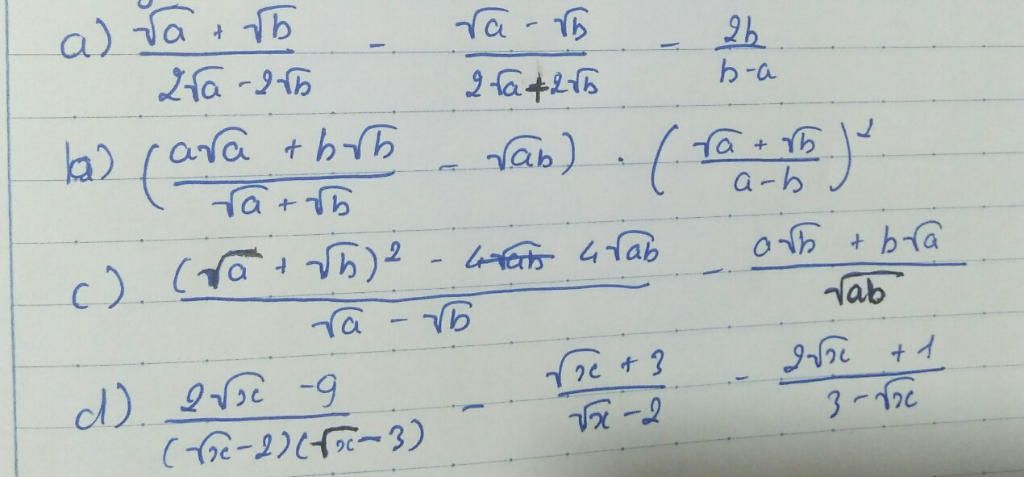 a) (√a + √b)/(2√a - 2√b) - (√a - √b)/(2√a + 2√b) - 2b/(b-a)
b) ((a√a + b√b)/(√a + √b) - √ab) . ((√a + √b)/(a-b))²
c) ((√a + √b)² - 4√ab)/(√a - √b) - (a√b + b√a)/√ab
d) (2√x - 9)/((√x-2)(√x-3)) - (√x + 3)/(√x-2) - (2√x + 1)/(3-√x)